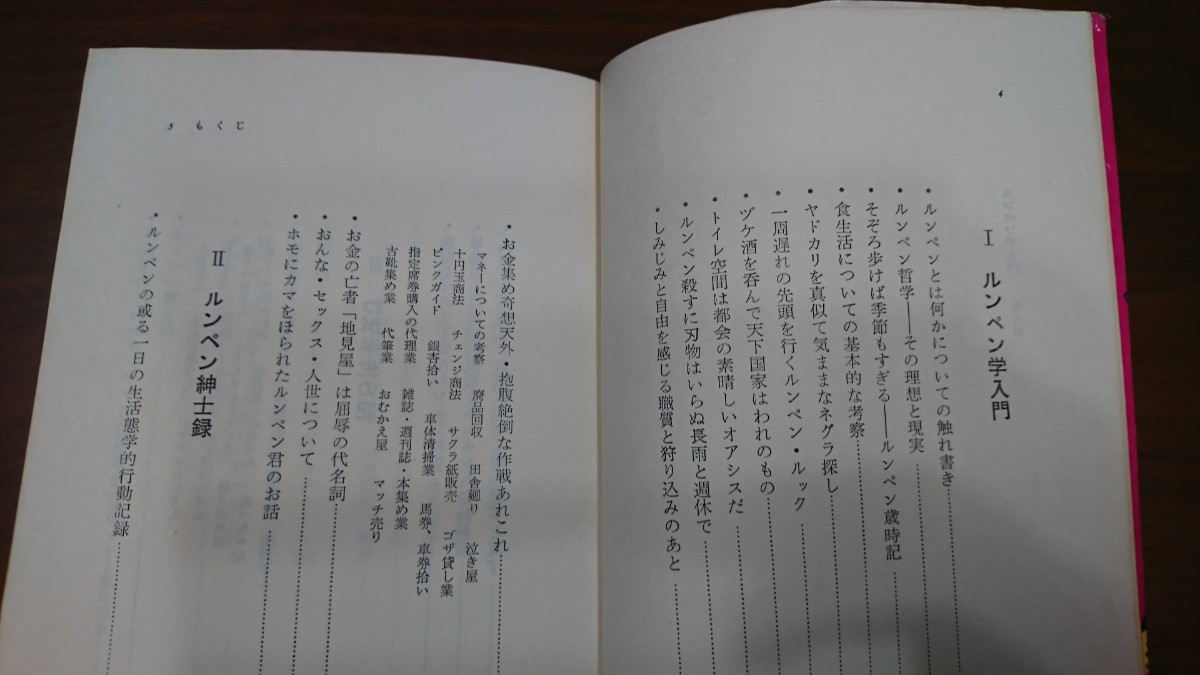 4
I ルンペン学入門
・ルンペンとは何かについての触れ書き
・ルンペン哲学——その理想と現実
・そぞろ歩けば季節もすぎる——ルンペン歳時記
・食生活についての基本的な考察
・ヤドカリを真似て気ままなネグラ探し
・一周遅れの先頭を行くルンペン・ルック
・ヅケ酒を呑んで天下国家はわれのもの
・トイレ空間は都会の素晴しいオアシスだ
・ルンペン殺すに刃物はいらぬ長雨と週休で
・しみじみと自由を感じる職質と狩り込みのあと
5 もくじ
・お金集め奇想天外・抱腹絶倒な作戦あれこれ
マネーについての考察 廃品回収 田舎廻り 泣き屋
十円玉商法 チェンジ商法 サクラ紙販売 ゴザ貸し業
ピンクガイド 銀杏拾い 車体清掃業 馬券、車券拾い
指定席券購入の代理業 雑誌・週刊誌・本集め業
古靴集め業 代筆業 おむかえ屋 マッチ売り
・お金の亡者「地見屋」は屈辱の代名詞
・おんな・セックス・人世について
・ホモにカマをほられたルンペン君のお話
II ルンペン紳士録
・ルンペンの或る一日の生活態学的行動記録